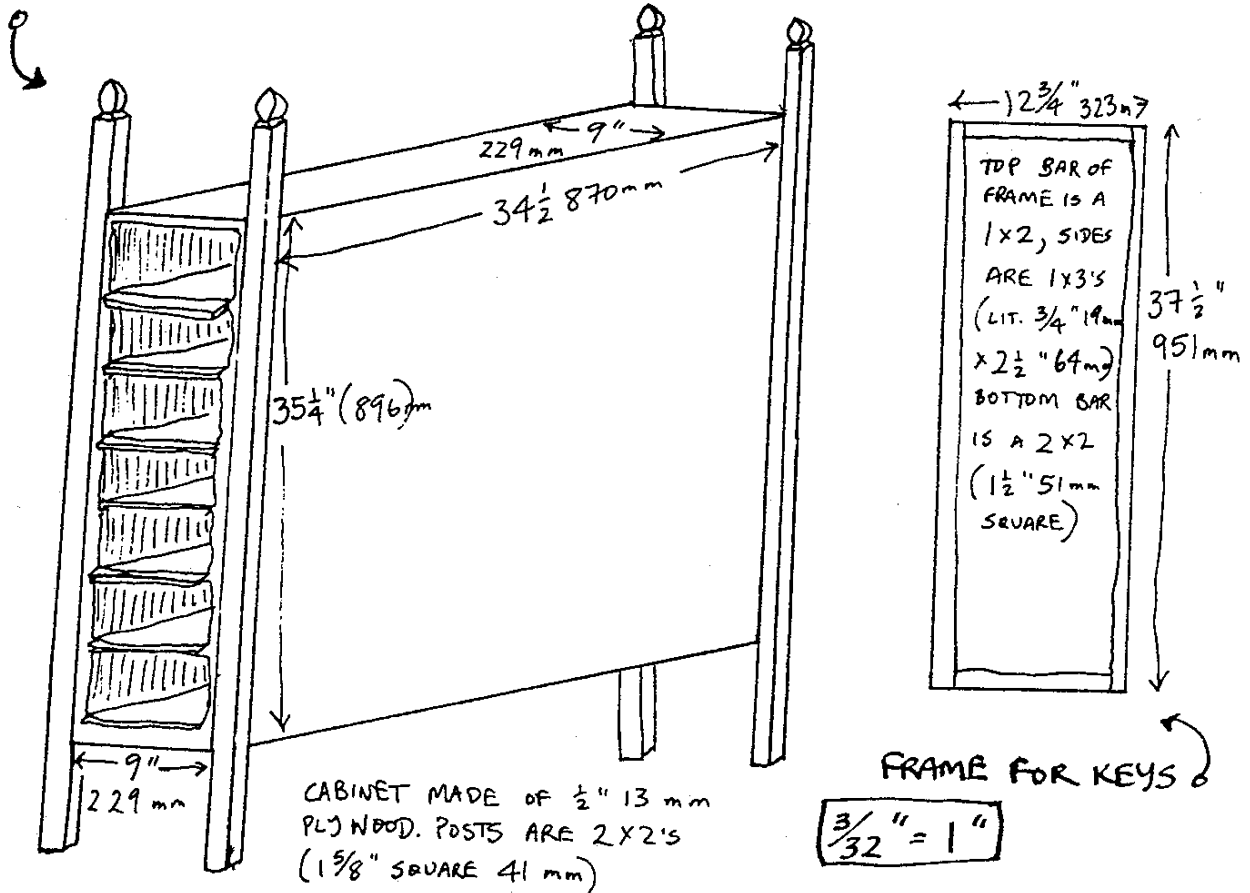 9"
229 mm
34 1/2 870mm
35 1/4" (896)mm
9"
229 mm
CABINET MADE OF 1/2" 13 mm
PLYWOOD. POSTS ARE 2X2'S
(1 5/8" SQUARE 41 mm)
12 3/4" 323m
TOP BAR OF
FRAME IS A
1X2, SIDES
ARE 1X3'S
(LIT. 3/4" 19mm
X 2 1/2" 64m)
BOTTOM BAR
IS A 2X2
(1 1/2" 51mm
SQUARE)
37 1/2"
951mm
FRAME FOR KEYS
3/32" = 1"